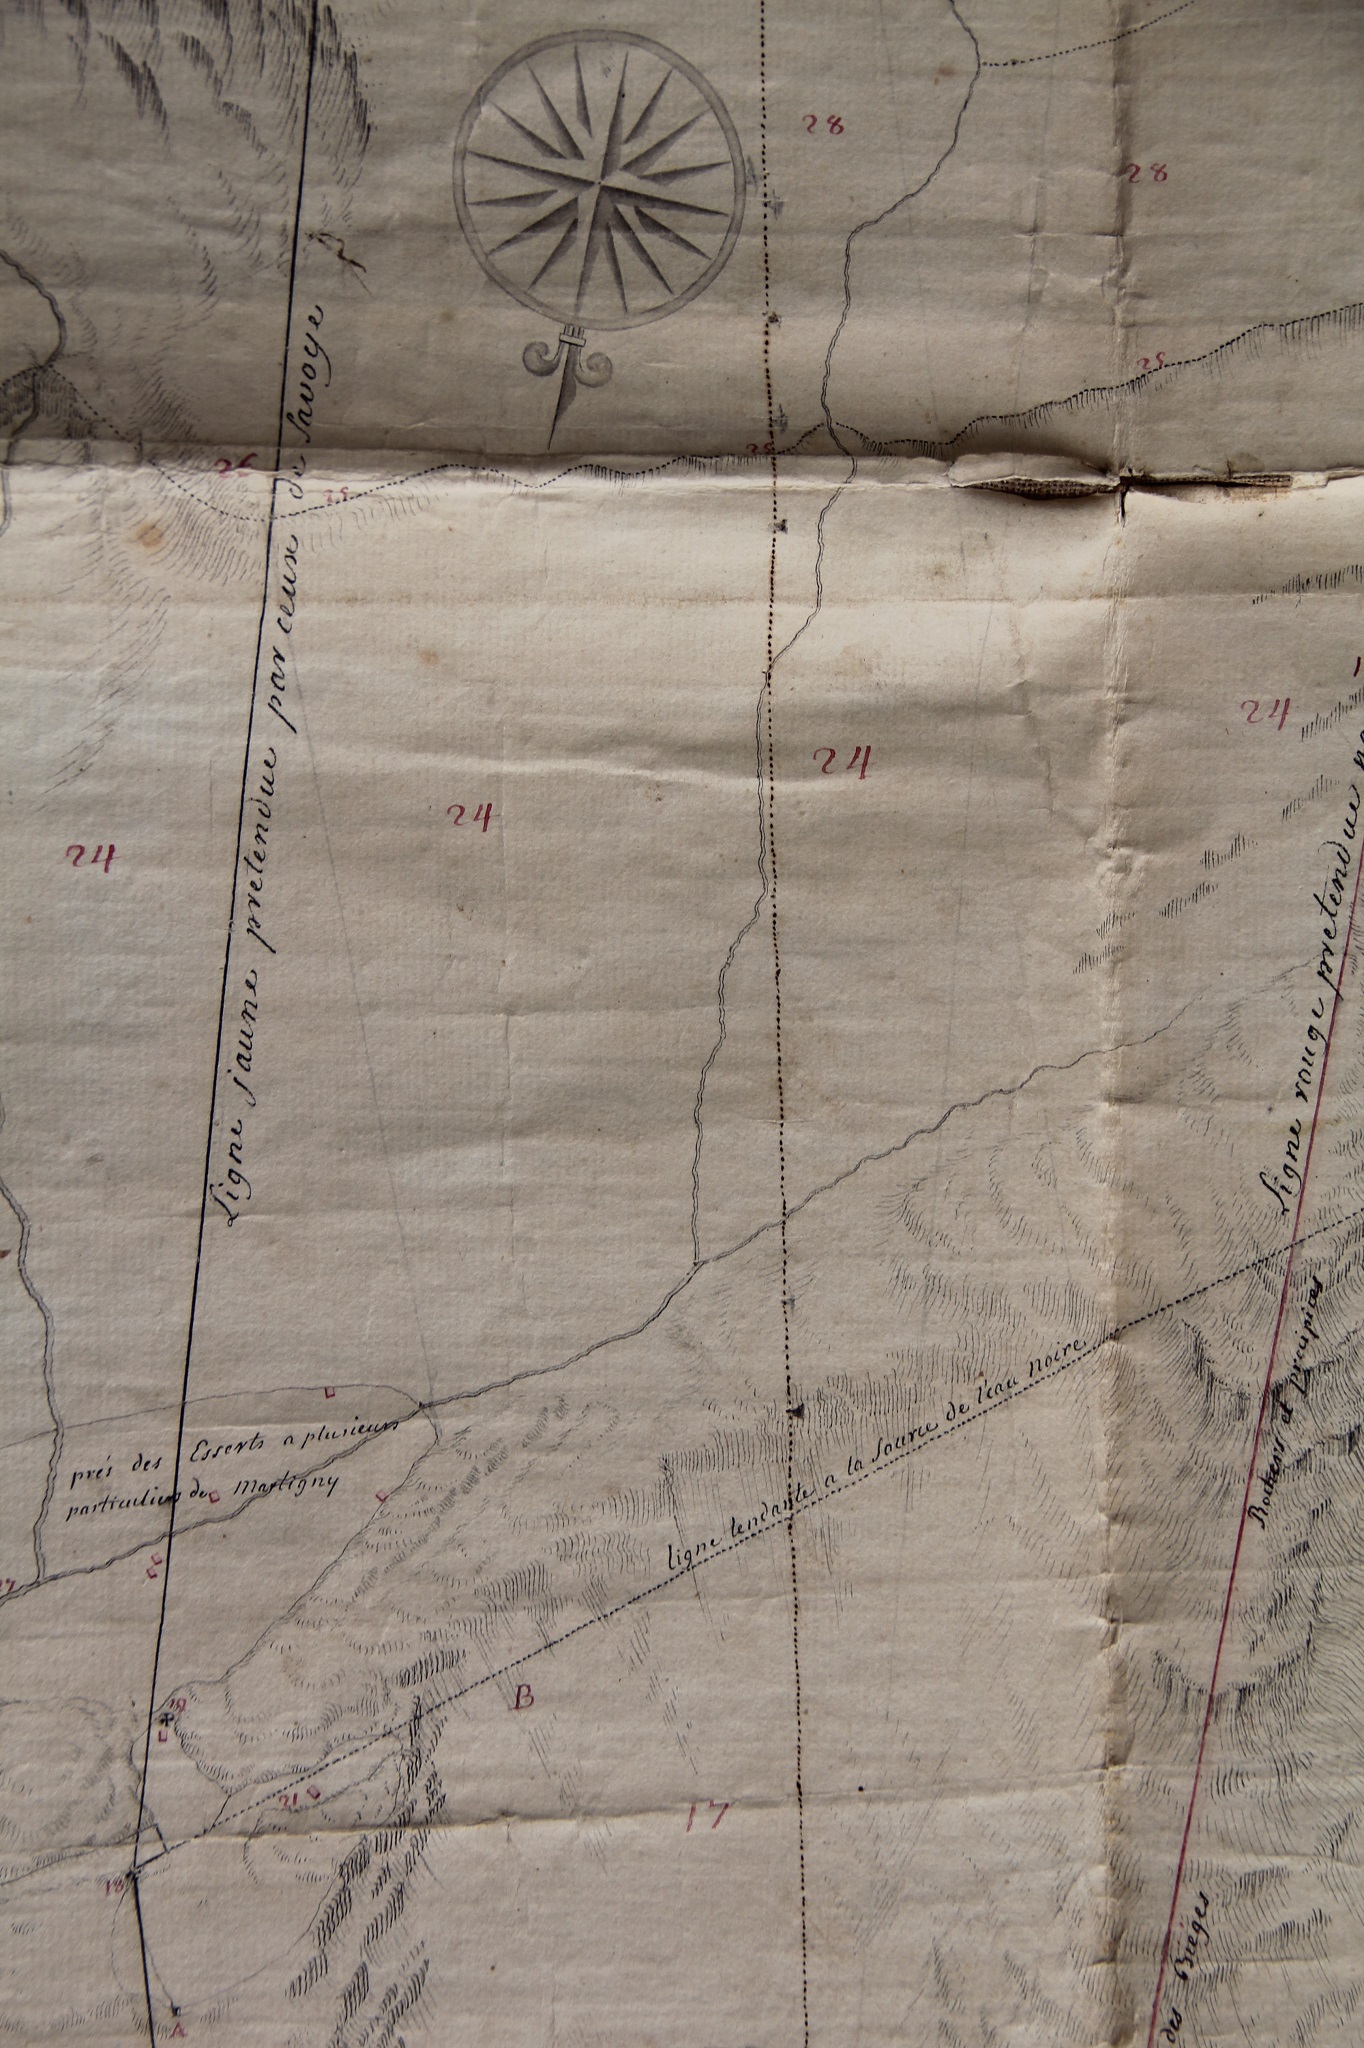 28
28
25
25
26
25
Ligne jaune pretendue par ceux de Savoye
24
24
24
24
Ligne rouge pretendue
prés des Esserts a plusieurs
particuliers de Martigny
ligne tendante a la Source de l'eau Noire
Rochers et precipices
B
21
17
18
A
des Bieges